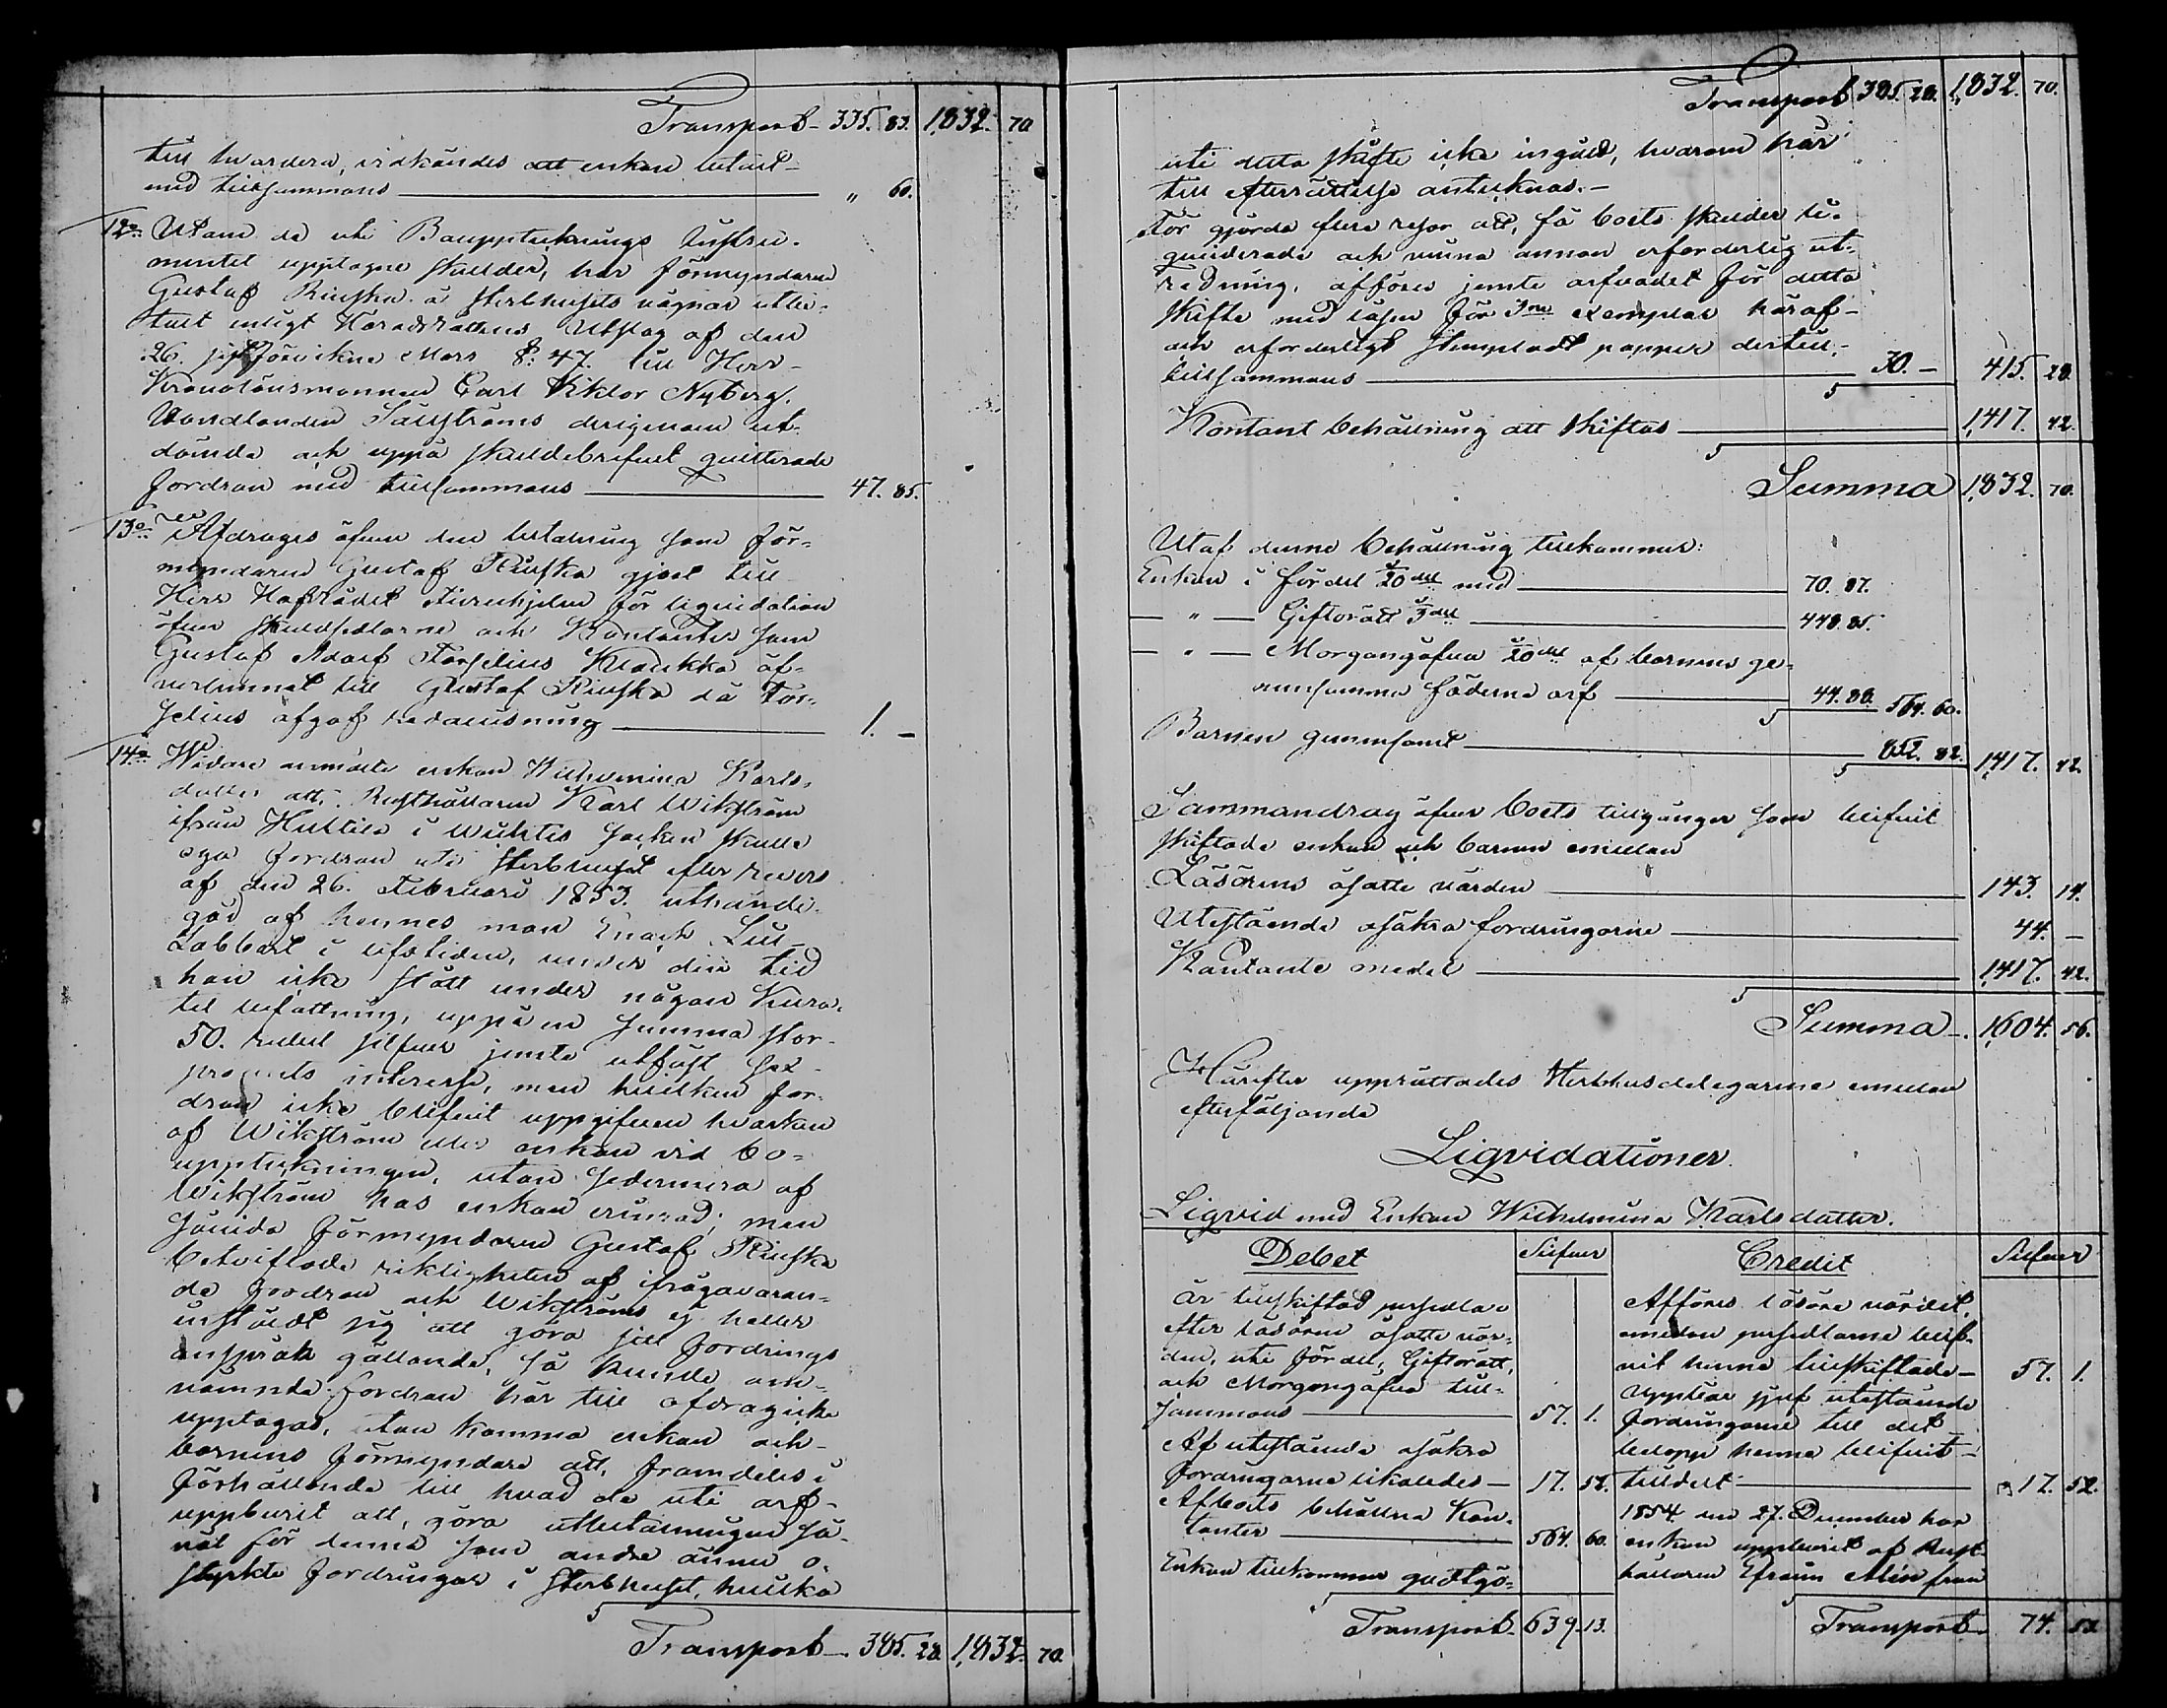 Transport 335. 83. 1,832. 70
till hvardera, vidkändes att enkan betalt
med tillsammans „ 60.
12o Utom de uti Bouppteknings Instru-
mentet upptagne skulder, har förmyndaren
Gustaf Riuska å sterbhusets vägnar utbe-
talt enligt Häradsrättens Utslag af den
26. sistförvikne Mars §: 47. till Herr
Kronolänsmannen Carl Viktor Nyberg,
Handlanden Sällströms derigenom ut-
dömda och uppå skuldebrefvet quitterade
fordran med tillsammans 47. 85.
13o Afdrages äfven den betalning som för-
myndaren Gustaf Riuska gjort till
Herr Hofrådet Fieuhjelm för liquidation
öfver skuldsedlarne och Kontanter som
Gustaf Adolf Forselius Kuoukka öf-
verlemnat till Gustaf Riuska då For-
selius afgaf redovisning 1. —
14o Vidare anmälte enkan Wilhelmina Karls-
dotter att, Rusthållaren Karl Wikström
ifrån Huhtila i Wichtis Socken skulle
ega fordran uti sterbhuset efter revers
af den 26. Februari 1853. uthändi-
gad af hennes man Enoch Lill
Labbart i lifstiden, under den tid
han icke stått under någon Kura-
tel befattning, uppå en summa stor
50. rubel silfver jemte utfäst sex
procents interesse, men hvilken for-
dran icke blifvit uppgifven hvarken
af Wikström eller enkan vid bo-
upptekningen, utan sedermera af
Wikström hos enkan erinrad; men
såvida förmyndaren Gustaf Riuska
betviflade riktigheten af ifrågavaran-
de fordran och Wikström ej heller
inställt sig att göra sitt fordrings
anspråk gällande, så kunde om-
nämnda fordran här till afdrag icke
upptagas, utan komma enkan och
barnens förmyndare att, framdeles i
förhållande till hvad de uti arf
uppburit att, göra utbetalningen så-
väl för denna som andra ännu o-
styrkta fordringar i sterbhuset, hvilka
Transport 385. 28 1,832. 70.
Transport 385. 28. 1,832. 70.
uti detta skifte icke ingått, hvarom här
till efterrättelse antecknas.—
För gjorda flera resor att, få boets skulder li-
quiderade och vinna annan erforderlig ut-
redning, afföres jemte arfvodet för detta
skifte med lösen för 3ne exemplar häraf
och erforderligt stempladt papper dertill,
tillsammans 30. — 415. 28.
Kontant behållning att skiftas 1,417. 42.
Summa 1,832. 70.
Utaf denna behållning tillkommer:
Enkan i fördel 1/20del med 70. 87.
— „ — Giftorätt 1/3del 448. 85.
— „ — Morgongåfva 1/20del af barnens ge-
mensamma fäderne arf 44. 88. 564. 60.
Barnen gemensamt 852. 82. 1,417. 42.
Sammandrag öfver boets tillgångar som blifvit
skiftade enkan och barnen emellan
Lösörens åsatte värden 143. 14.
Utestående osäkra fordringarne 44. —
Kontante medel 1,417. 42.
Summa 1,604. 56.
Härefter upprättades Sterbhusdelegarne emellan
efterföljande
Liqvidationer.
Liqvid med Enkan Wilhelmina Karlsdotter.
Debet Silfver Credit Silfver
Är tillskiftad persedlar
efter lösören åsatte vär-
den, uti fördel, Giftorätt,
och Morgongåfva till-
sammans 57. 1.
Af utestående osäkra
fordringarne likaledes 17. 52.
Af boets behållna Kon-
tanter 564. 60.
Enkan tillkommer godtgö-
Transport 639. 13.
Afföres lösöre värdet,
emedan persedlarne blif-
vit henne tillskiftade 57. 1.
Uppbär sjelf utestående
fordringarne till det
belopp henne blifvit
tilldelt 17. 52.
1854 den 27. December har
enkan uppburit af Rust-
hållaren Efraim Alin från
Transport 74. 53.